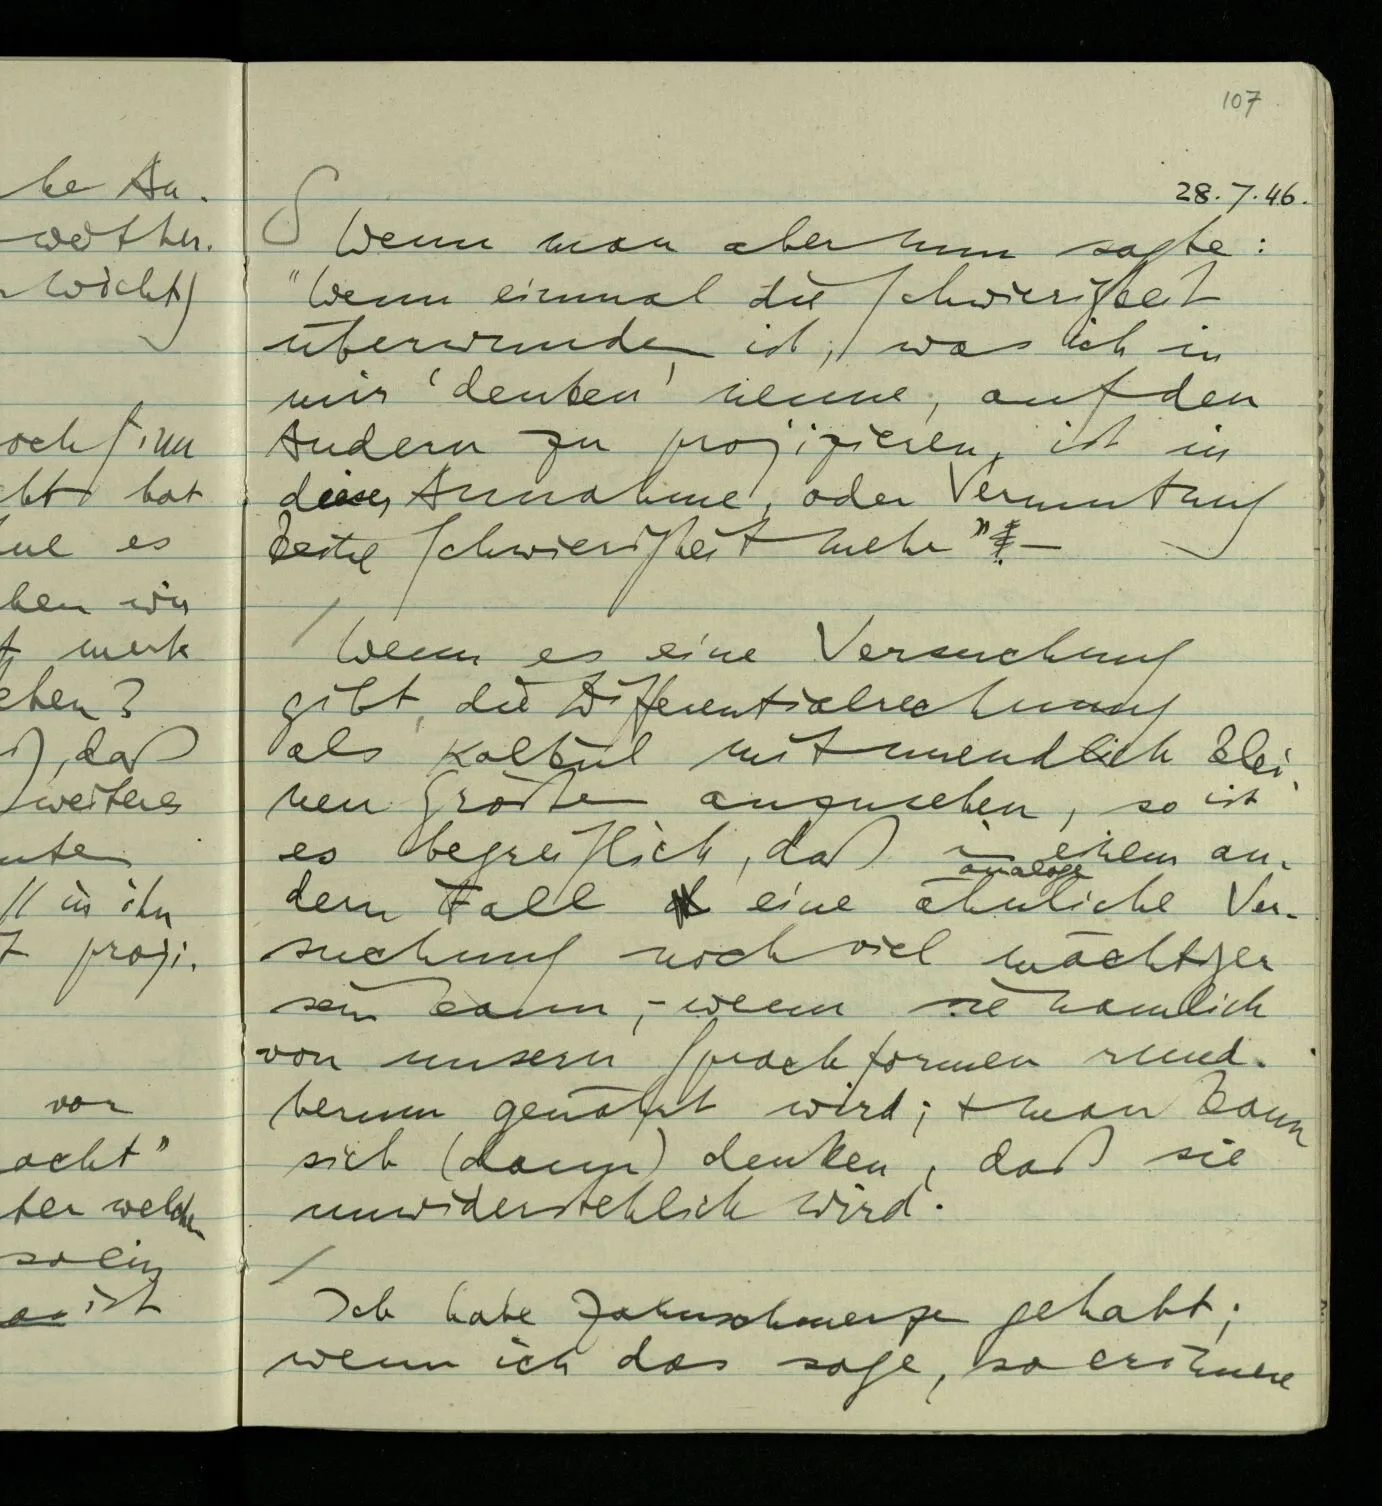 he An-
weither.
Wicht)
och Sinn
cht hat
es
hen wir
merk
ehen?
, daß
weiteres
unter
// in ihn
proji-
vor
acht"
ter welchen
so ein
ist
107
28.7.46.
S Wenn man aber nun sagte:
"Wenn einmal die Schwierigkeit
überwunden ist, was ich in
mir 'denken' nenne, auf den
Andern zu projizieren, ist in
dieser Annahme, oder Vermutung
keine Schwierigkeit mehr" –
/ Wenn es eine Versuchung
gibt, die Differentialrechnung
als Kalkül mit unendlich klei-
nen Größen anzusehen, so ist
es begreiflich, daß in einem an-
analoge
dern Fall eine ähnliche Ver-
suchung noch viel mächtiger
sein kann, – wenn sie nämlich
von unsern Sprachformen rund-
herum genährt wird; + man kann
sich (dann) denken, daß sie
unwiderstehlich wird.
/ Ich habe Zahnschmerzen gehabt;
wenn ich das sage, so erinnere